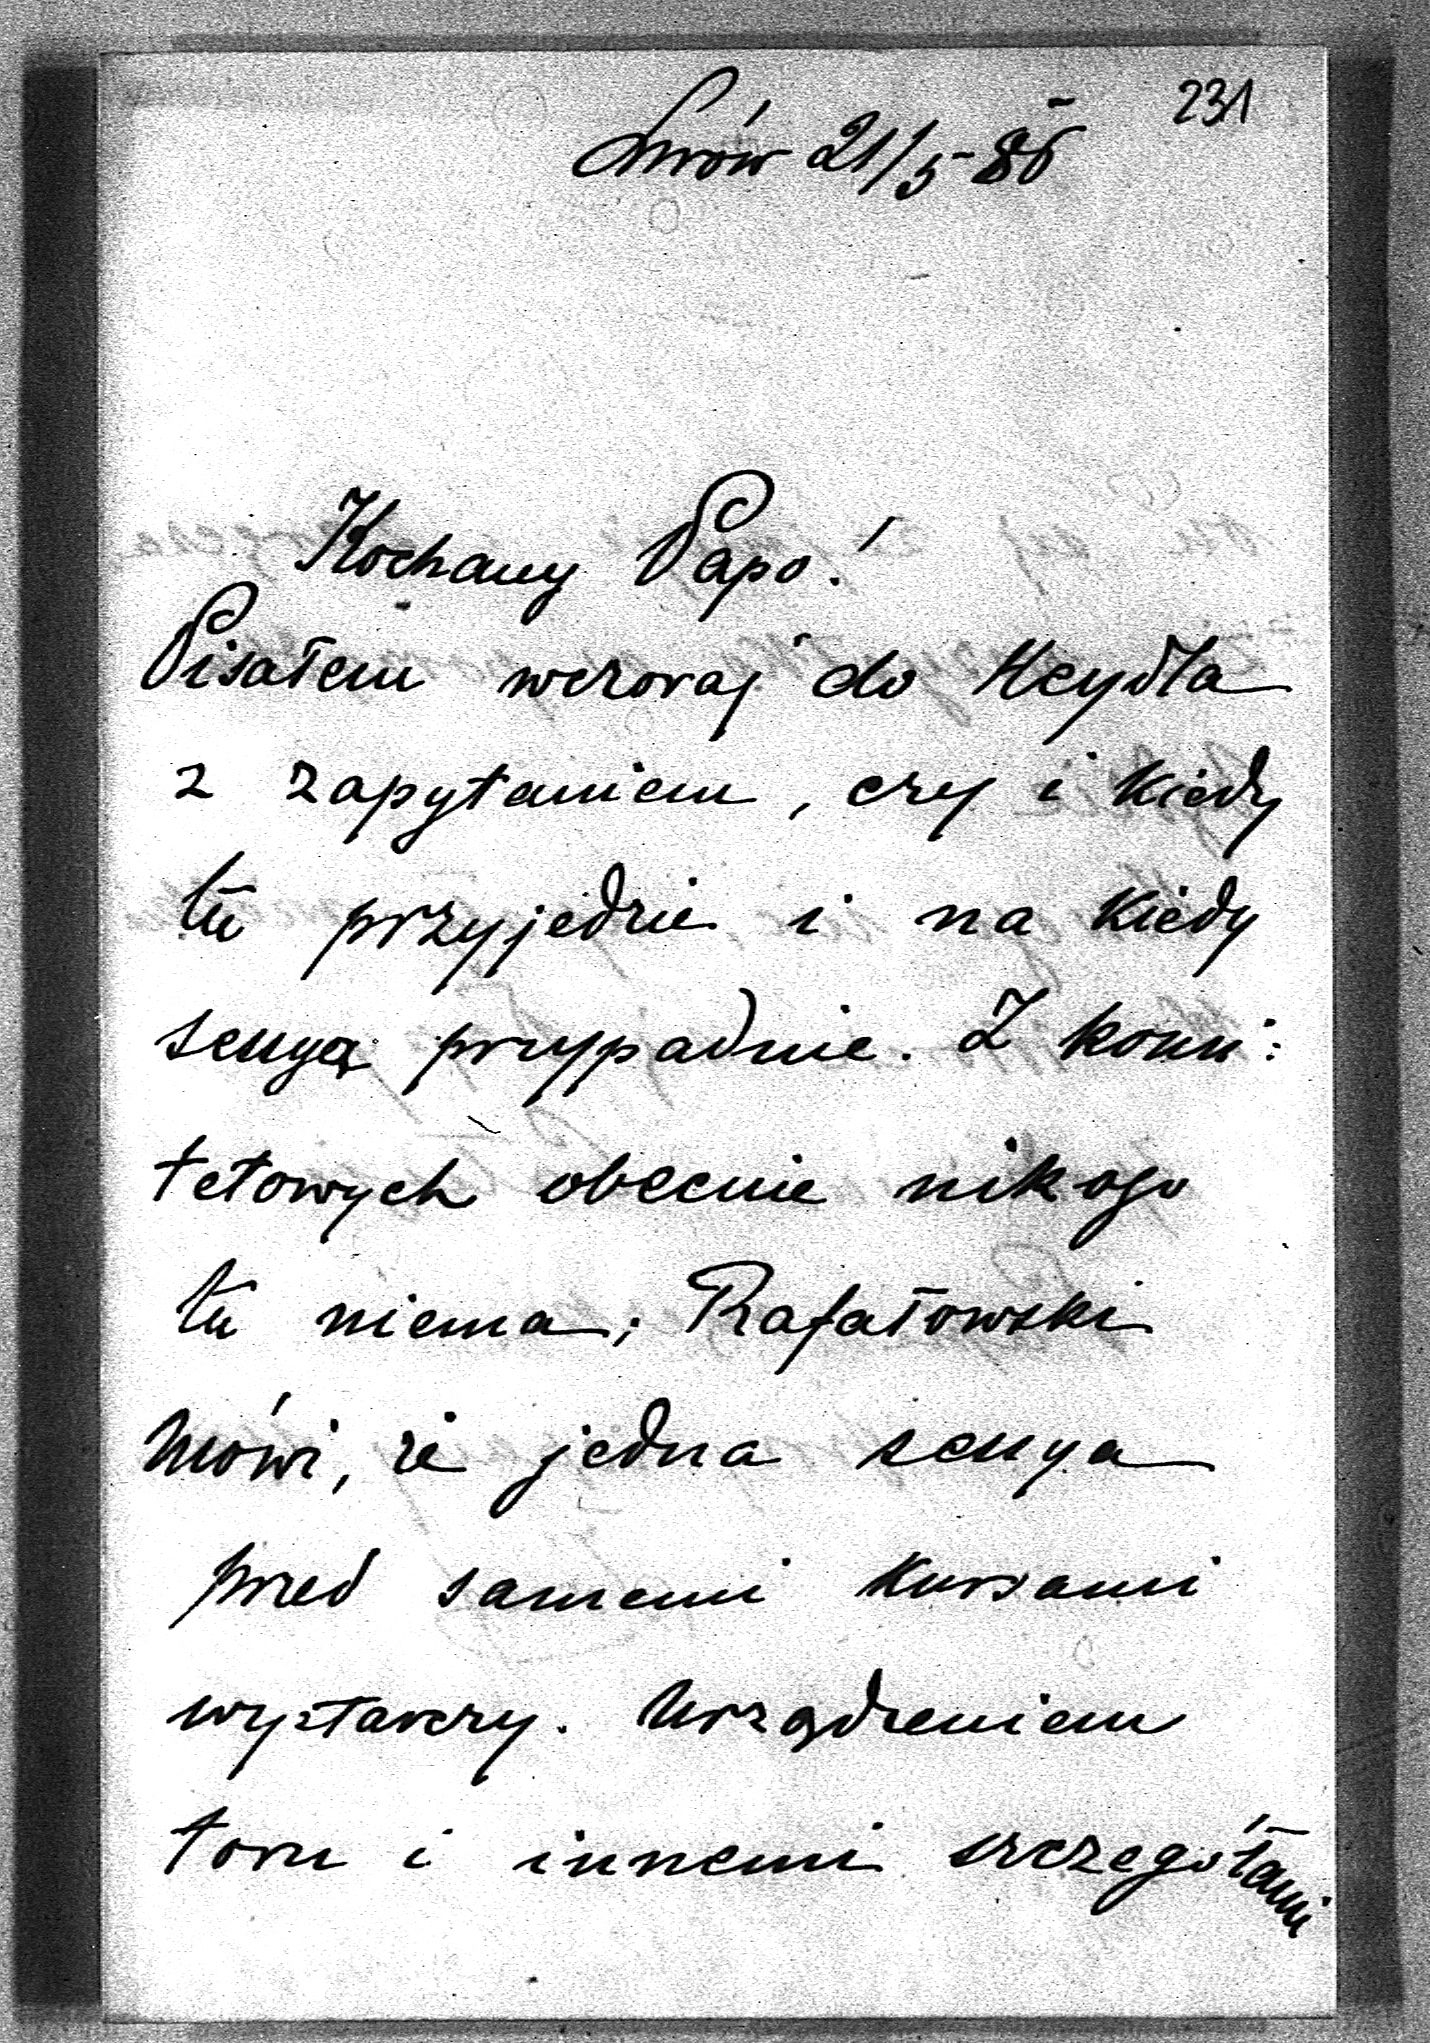 231
Lwów 21/5 86
Kochany Papo!
Pisałem wczoraj do Heydla
z zapytaniem, czy i kiedy
tu przyjedzie i na kiedy
sesyą przypadnie. Z komi:
tetowych obecnie nikogo
tu niema; Rafałowski
mówi, że jedna sesya
przed samemi kursami
wystarczy. Urządzeniem
toru i innemi szczegółami